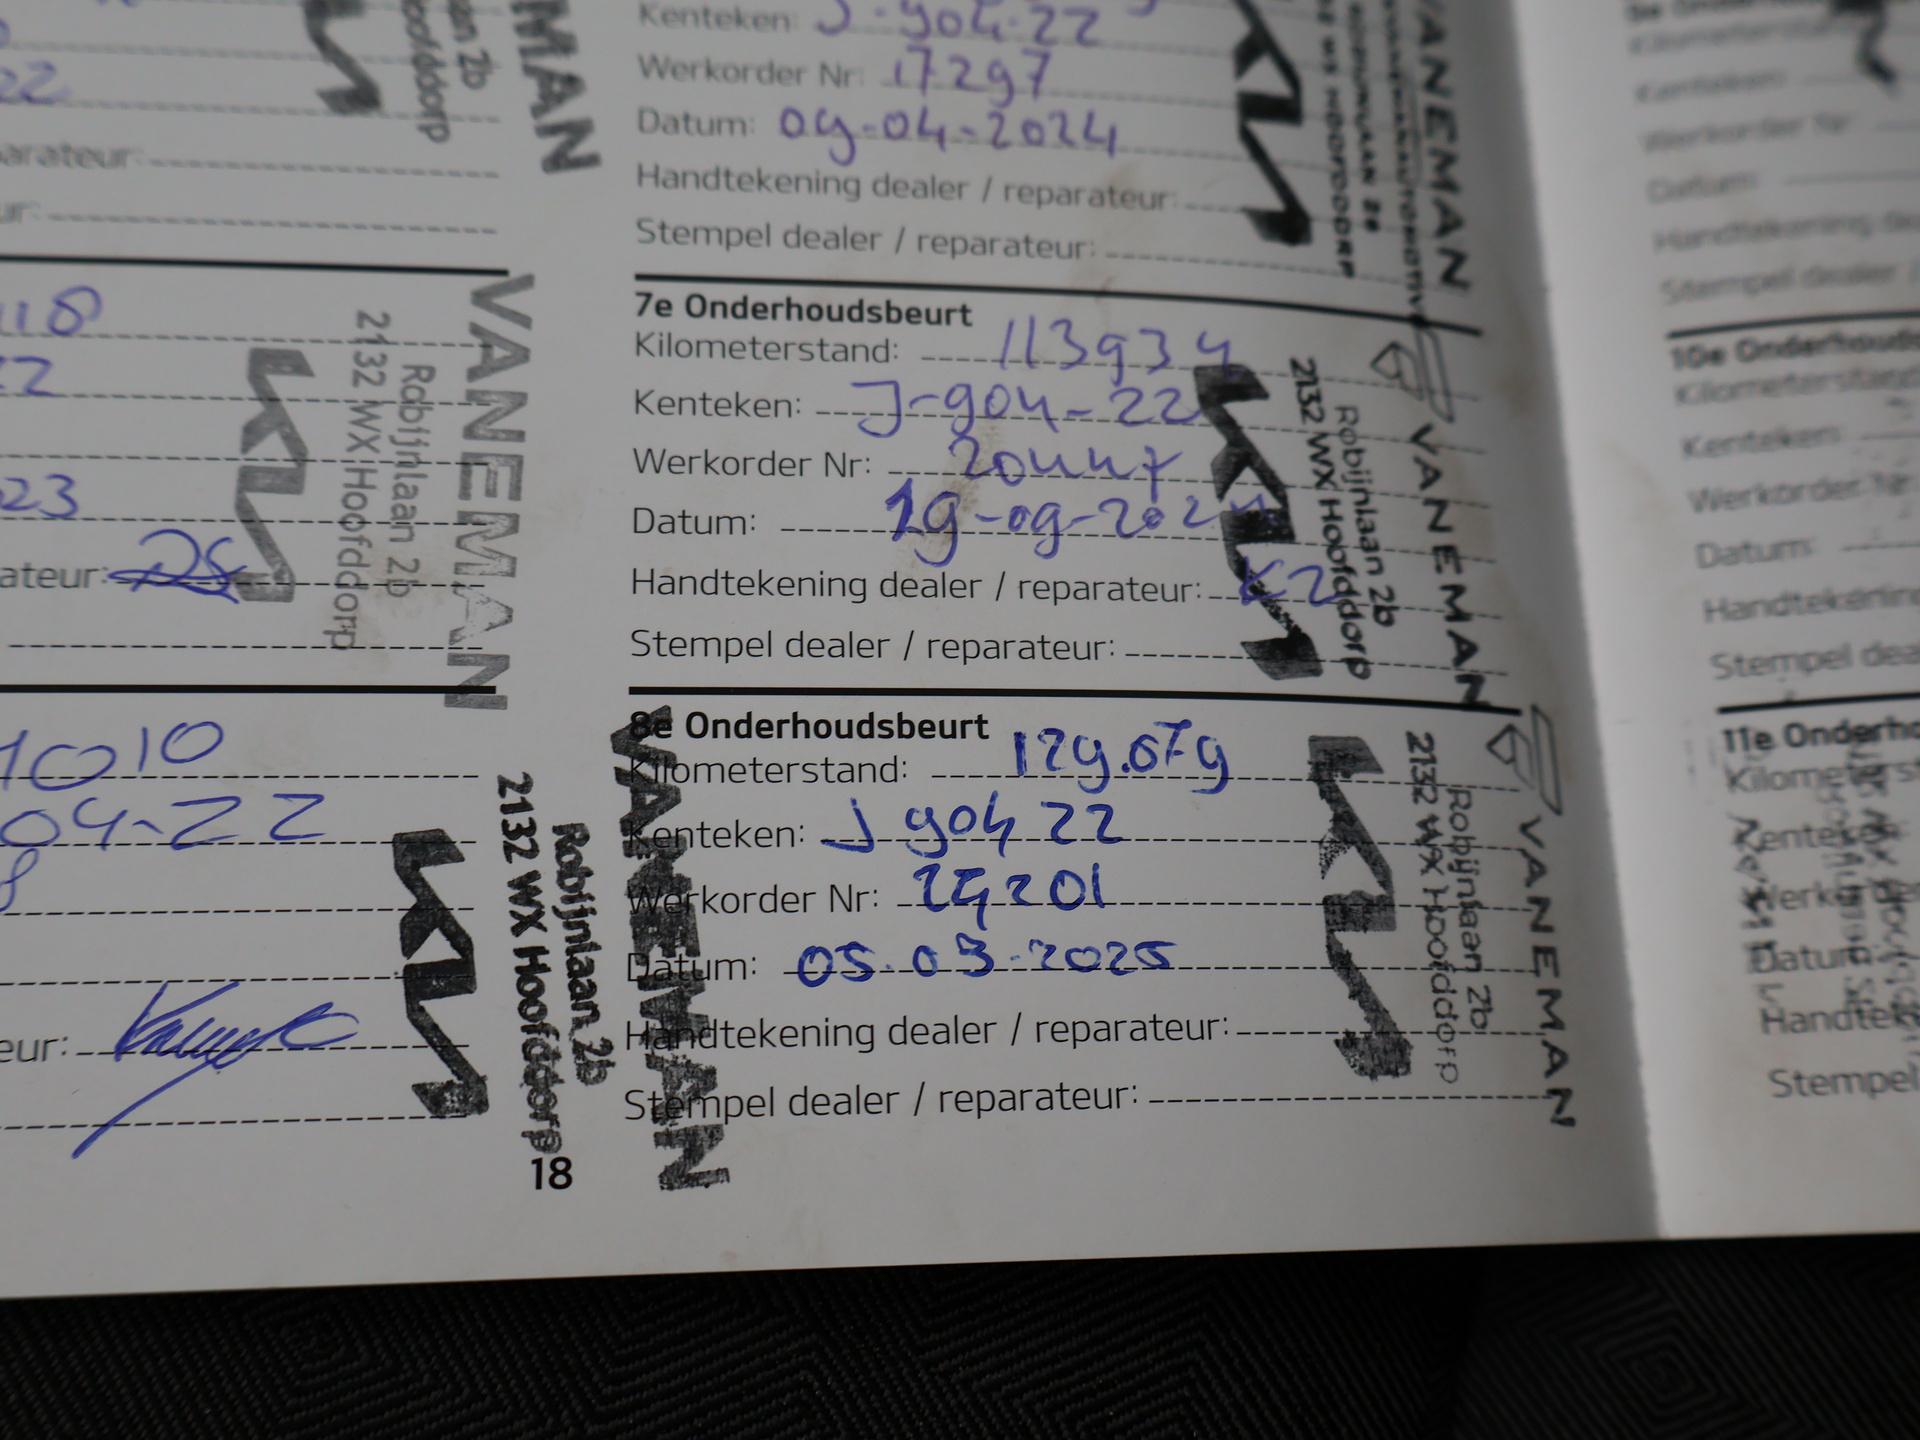 22
arateur:
ur:
en 2b
oofddorp
MAN
118
22
023
ateur:
VANEMAN
Robijnlaan 2b
2132 WX Hoofddorp
KIA
1010
04-22
eur:
KIA
Robijnlaan 2b
2132 WX Hoofddorp
VANEMAN
18
Kenteken: J-904-22
Werkorder Nr: 17297
Datum: 09-04-2024
Handtekening dealer / reparateur:
Stempel dealer / reparateur:
KIA
VANEMAN
7e Onderhoudsbeurt
Kilometerstand: 113934
Kenteken: J-904-22
Werkorder Nr: 20447
Datum: 19-09-2024
Handtekening dealer / reparateur:
Stempel dealer / reparateur:
KIA
VANEMAN
Robijnlaan 2b
2132 WX Hoofddorp
8e Onderhoudsbeurt
Kilometerstand: 129.079
Kenteken: J 904 22
Werkorder Nr: 24201
Datum: 05.03.2025
Handtekening dealer / reparateur:
Stempel dealer / reparateur:
KIA
VANEMAN
Robijnlaan 2b
2132 WX Hoofddorp
Kenteken:
Werkorder Nr:
Datum:
Stempel dealer /
10e Onderhouds
Kilometerstand
Kenteken:
Werkorder Nr:
Datum:
Handtekening
Stempel deal
11e Onderho
Kilometerst
Kenteken
Werkorder
Datum
Handtek
Stempel